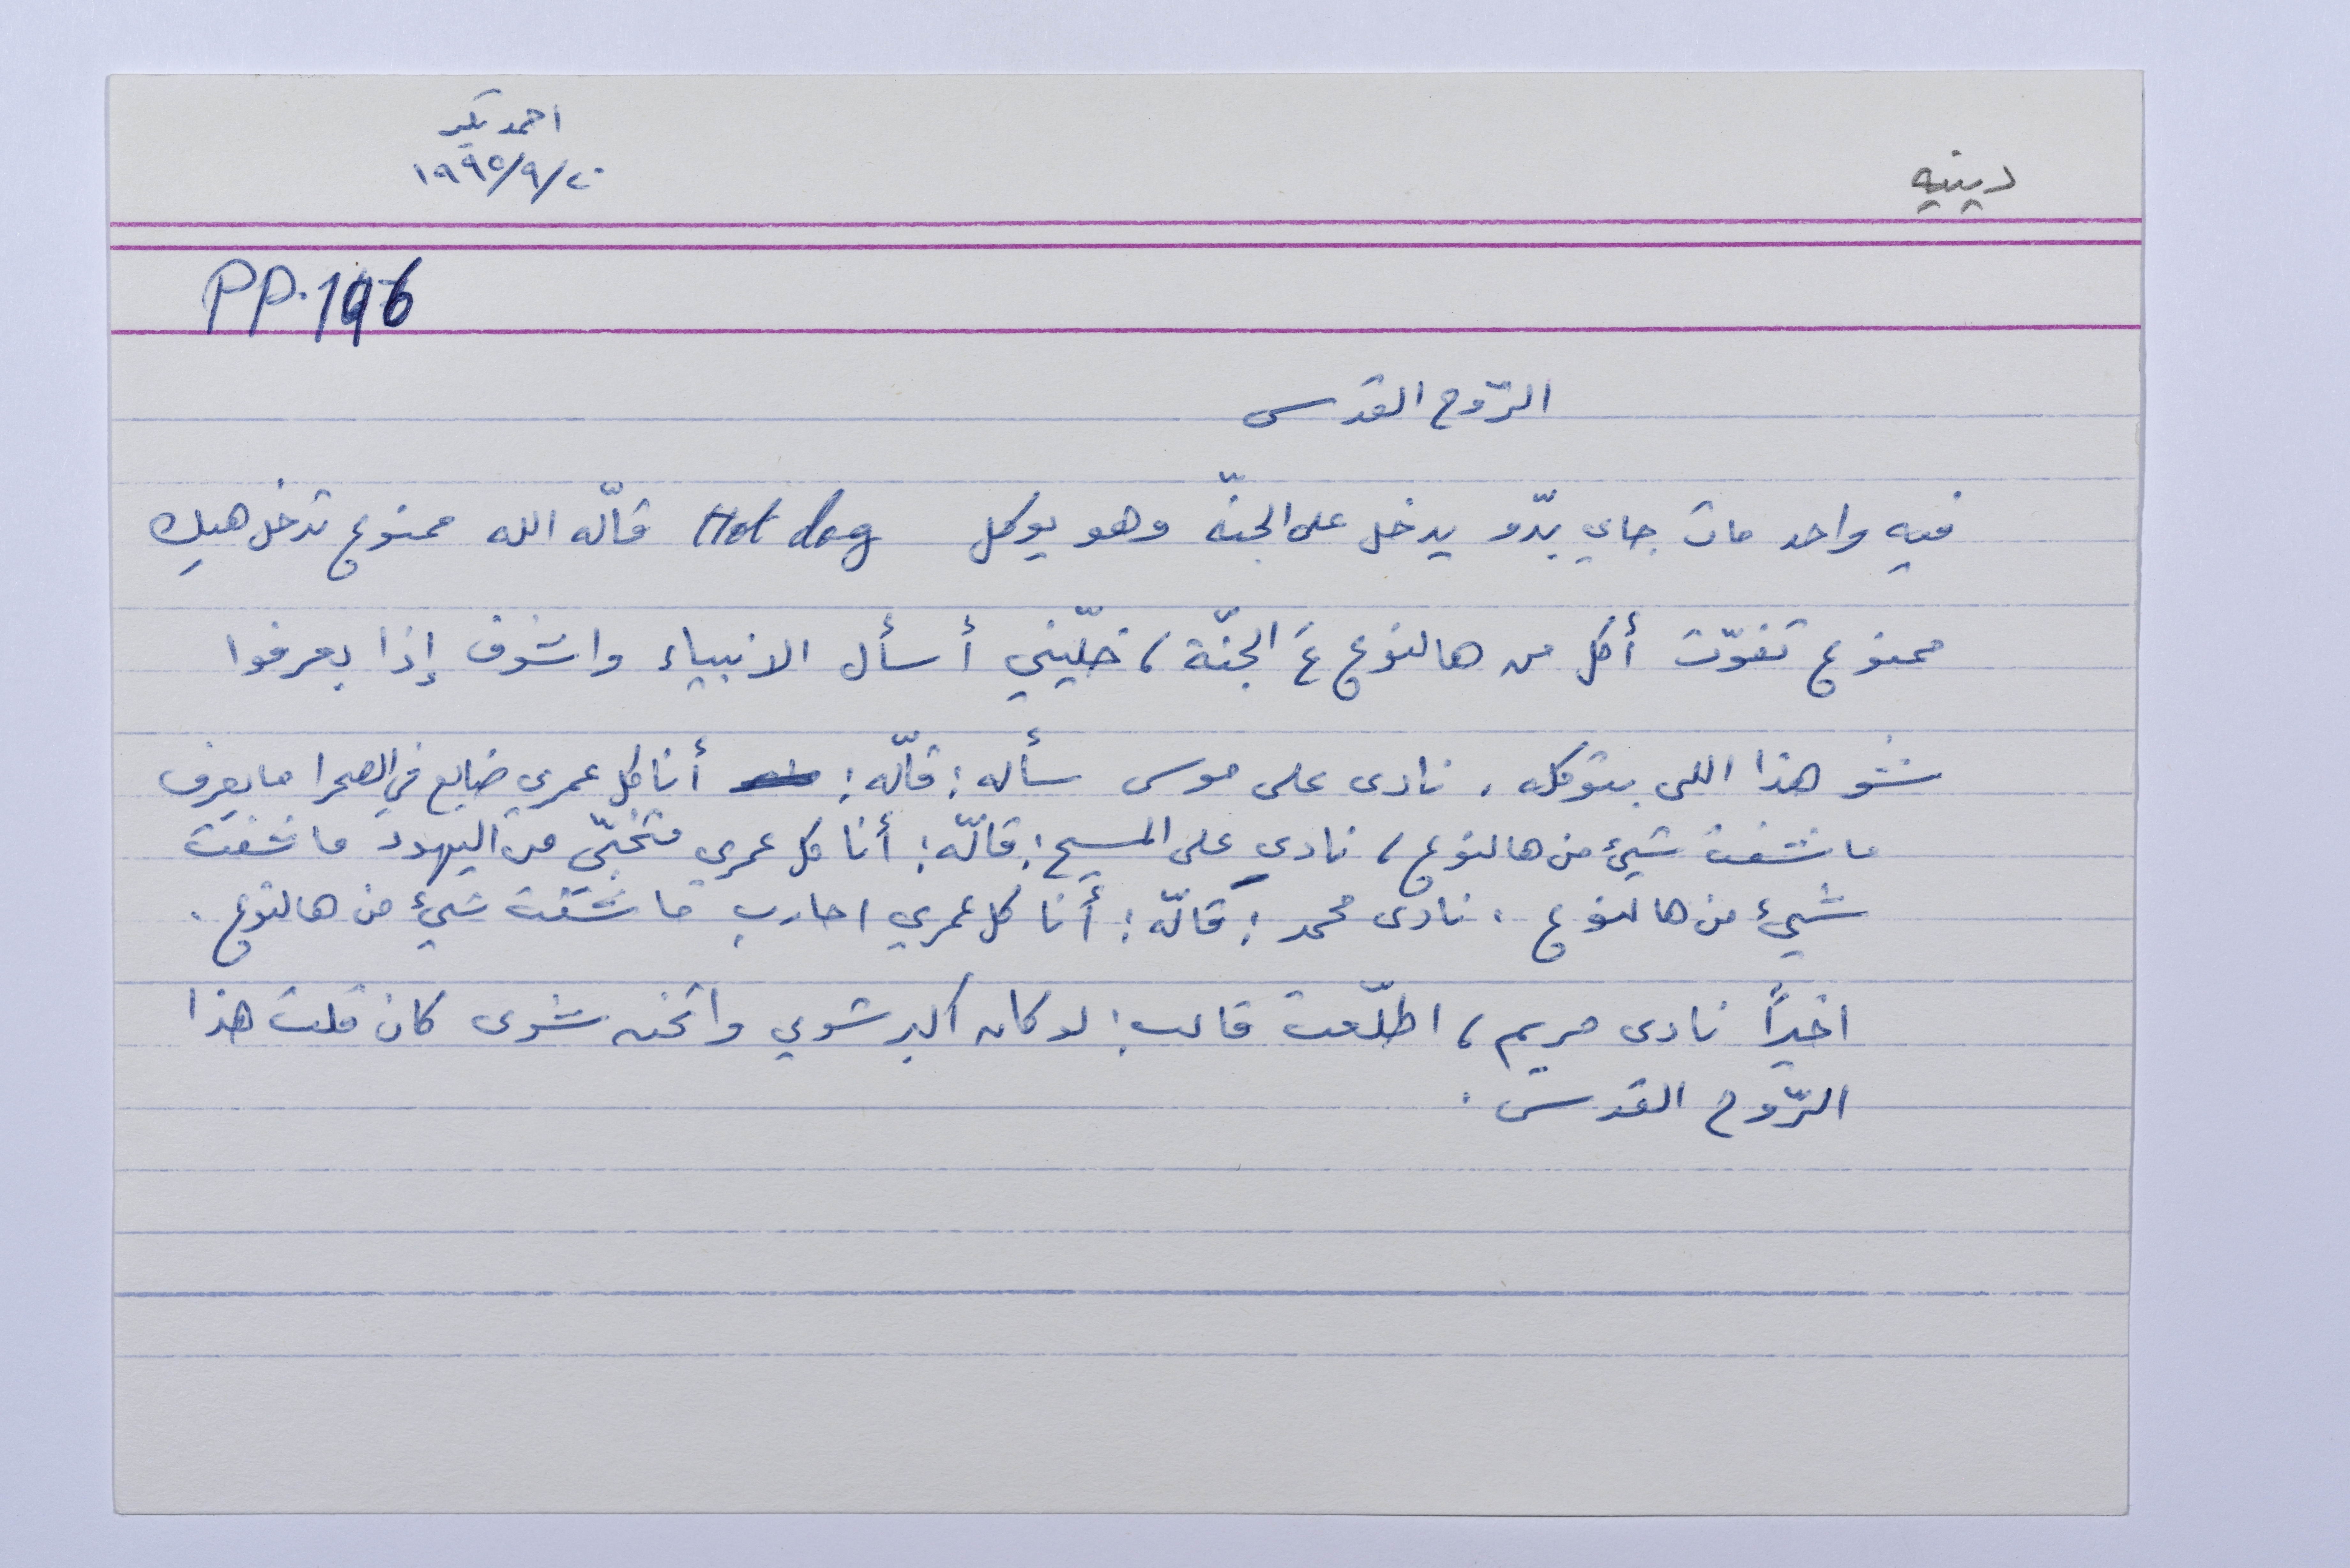 دينيه
احمد بكر
٢٠/٩/١٩٩٥
PP.196
الرّوح القدس
فيه واحد مات جاي بدّو يدخل على الجنّة وهو يوكل Hot dog قالّه الله ممنوع تدخل هيك
ممنوع تفوّت أكل من هالنوع عَ الجنّة، خلّيني أسأل الانبياء واشوف إذا بعرفوا
شو هذا اللي بتوكله. نادى على موسى سأله: قالّه: أنا كل عمري ضايع في الصحرا ما بعرف
ما شفت شيئ من هالنوع، نادى على المسيح: قالّه: أنا كل عمري متخبّي من اليهود ما شفت
شيئ من هالنوع. نادى محمد: قالّه: أنا كل عمري احارب ما شفت شيئ من هالنوع.
اخيراً نادى مريم، اطلّعت قالت: لو كان اكبر شوي واتخن شوي كان قلت هذا
الرّوح القدس.